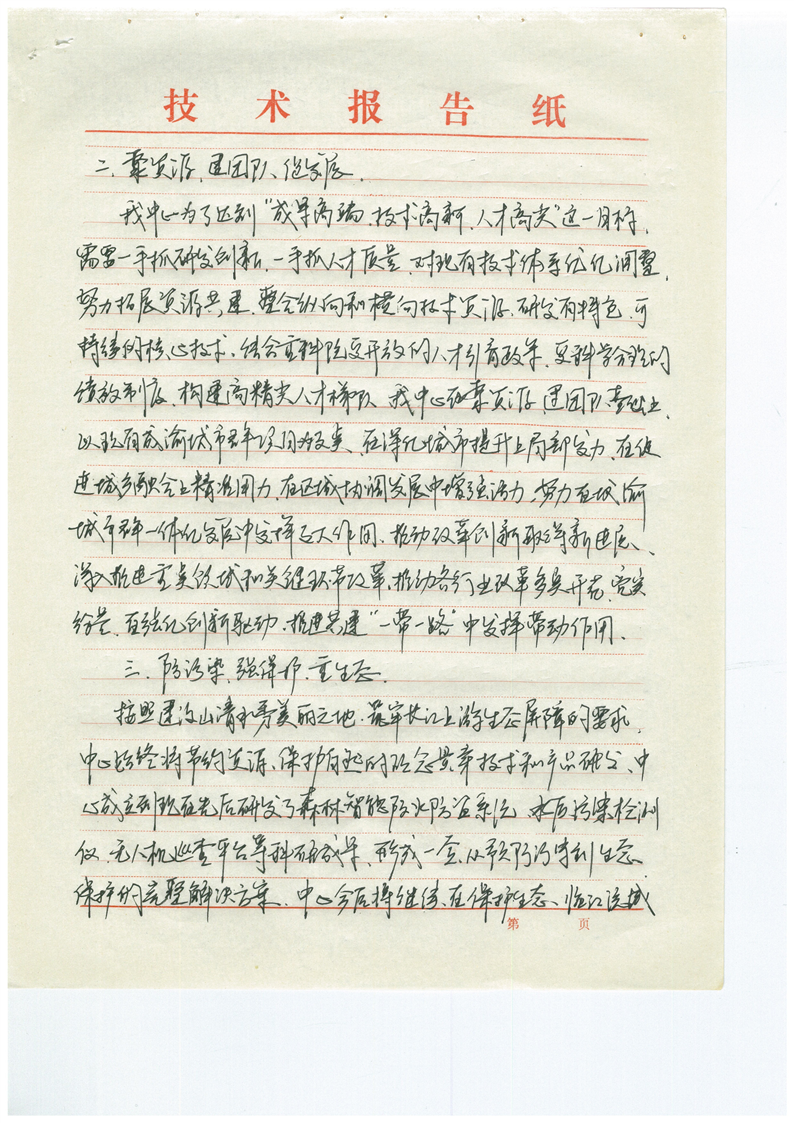 技术报告纸
二、聚资源、建团队、促发展。
我中心为了达到“成果高端、技术高新、人才高尖”这一目标，
需要一手抓研发创新，一手抓人才质量，对现有技术体系优化调整，
努力拓展资源共建，整合纵向和横向技术资源，研发有特色、可
持续的核心技术。结合重科院更开放的人才引育政策，更科学合理的
绩效制度，构建高精尖人才梯队。我中心在聚资源、建团队基础上，
以现有成渝城市群项目为支点，在深化城市提升上局部发力，在促
进城乡融合上精准用力，在区域协调发展中增强活力，努力在成渝
城市群一体化发展中发挥更大作用、推动改革创新取得新进展、
深入推进重点领域和关键环节改革，推动各行业改革多点开花、
给量，在强化创新驱动、推进共建“一带一路”中发挥带动作用。
三、防污染、强保护、重生态。
按照建设山清水秀美丽之地、筑牢长江上游生态屏障的要求，
中心始终将节约资源、保护自然的理念贯穿技术和产品研发、中
心成立到现在先后研发了森林智能防火防盗系统、水质污染检测
仪、无人机巡查平台等科研成果，形成一套从预防污染到生态
保护的完整解决方案。中心今后将继续在保护生态、临江流域
第 页